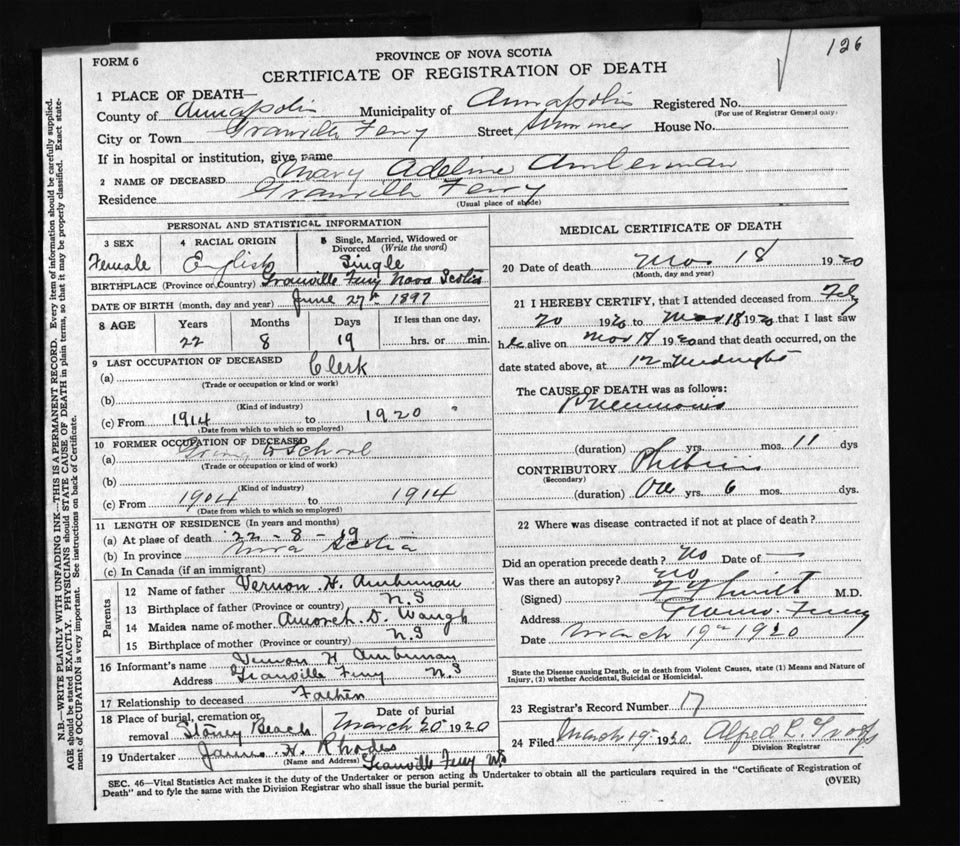 126
PROVINCE OF NOVA SCOTIA
FORM 6
CERTIFICATE OF REGISTRATION OF DEATH
1 PLACE OF DEATH—
County of Annapolis Municipality of Annapolis Registered No.
(For use of Registrar General only)
City or Town Granville Ferry Street House No.
If in hospital or institution, give name
2 NAME OF DECEASED Mary Adeline Amberman
Residence Granville Ferry
(Usual place of abode)
PERSONAL AND STATISTICAL INFORMATION
3 SEX 4 RACIAL ORIGIN 5 Single, Married, Widowed or Divorced (Write the word)
Female English Single
BIRTHPLACE (Province or Country) Granville Ferry Nova Scotia
DATE OF BIRTH (month, day and year) June 27th 1897
8 AGE Years Months Days If less than one day,
22 8 19 hrs. or min.
9 LAST OCCUPATION OF DECEASED
(a) Clerk
(Trade or occupation or kind of work)
(b)
(Kind of industry)
(c) From 1914 to 1920
(Date from which to which so employed)
10 FORMER OCCUPATION OF DECEASED
(a) Going to School
(Trade or occupation or kind of work)
(b)
(Kind of industry)
(c) From 1904 to 1914
(Date from which to which so employed)
11 LENGTH OF RESIDENCE (In years and months)
(a) At place of death 22 - 8 - 19
(b) In province Nova Scotia
(c) In Canada (if an immigrant)
Parents
12 Name of father Vernon H. Amberman
13 Birthplace of father (Province or country) N.S
14 Maiden name of mother D. Waugh
15 Birthplace of mother (Province or country) N.S
16 Informant's name Vernon H Amberman
Address Granville Ferry N.S
17 Relationship to deceased Father
18 Place of burial, cremation or removal Stoney Beach
Date of burial March 20 1920
19 Undertaker James H. Rhodes
(Name and Address) Granville Ferry NS
MEDICAL CERTIFICATE OF DEATH
20 Date of death Mar 18 1920
(Month, day and year)
21 I HEREBY CERTIFY, that I attended deceased from Feb
20 1920 to Mar 18 1920 that I last saw
h alive on Mar 18 1920 and that death occurred, on the
date stated above, at 12 m Midnight
The CAUSE OF DEATH was as follows:
Pneumonia
(duration) yrs. mos. 11 dys
CONTRIBUTORY Phthisis
(Secondary)
(duration) One yrs. 6 mos. dys.
22 Where was disease contracted if not at place of death?
Did an operation precede death? no Date of —
Was there an autopsy? no
(Signed) M.D.
Address Ferry
Date March 19th 1920
State the Disease causing Death, or in death from Violent Causes, state (1) Means and Nature of Injury, (2) whether Accidental, Suicidal or Homicidal.
23 Registrar's Record Number 17
24 Filed March 19th 1920 Alfred L. Troop
Division Registrar
SEC. 46—Vital Statistics Act makes it the duty of the Undertaker or person acting as Undertaker to obtain all the particulars required in the "Certificate of Registration of
Death" and to fyle the same with the Division Registrar who shall issue the burial permit.
(OVER)
N.B.—WRITE PLAINLY WITH UNFADING INK—THIS IS A PERMANENT RECORD. Every item of information should be carefully supplied.
AGE should be stated EXACTLY. PHYSICIANS should STATE CAUSE OF DEATH in plain terms, so that it may be properly classified. Exact statement of OCCUPATION is very important. See instructions on back of Certificate.